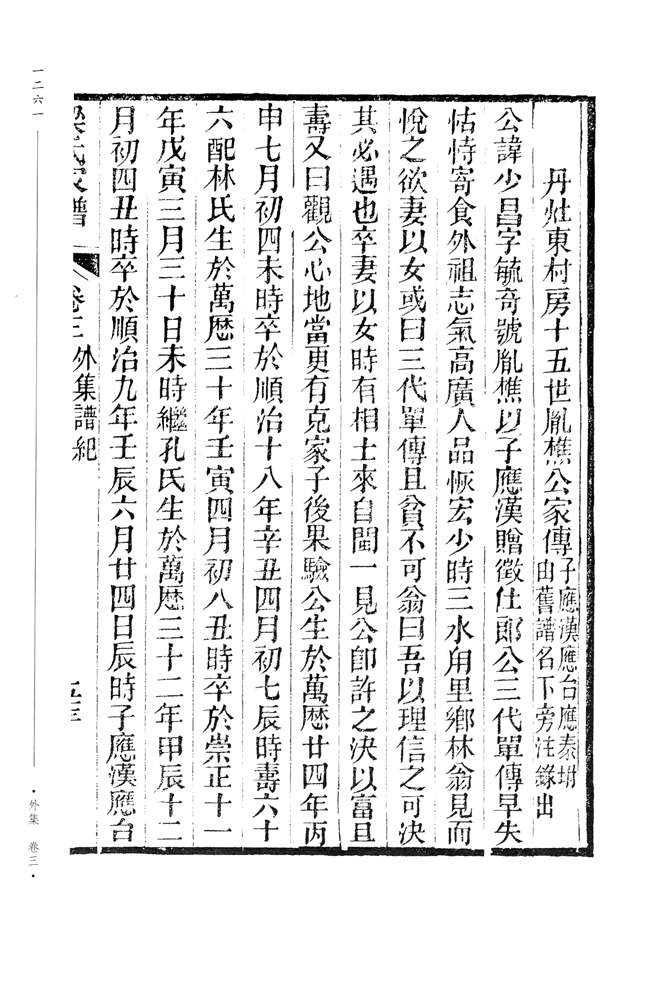 丹灶東村房十五世胤樵公家傳子應漢應台應泰坿
由舊譜名下旁注錄出
公諱少昌字毓奇號胤樵以子應漢贈徵仕郎公三代單傳早失
怙恃寄食外祖志氣高廣人品恢宏少時三水角里鄉林翁見而
悅之欲妻以女或曰三代單傳且貧不可翁曰吾以理信之可決
其必遇也卒妻以女時有相士來自閩一見公卽許之決以富且
壽又曰觀公心地當更有克家子後果驗公生於萬厯廿四年丙
申七月初四未時卒於順治十八年辛丑四月初七辰時壽六十
六配林氏生於萬厯三十年壬寅四月初八丑時卒於崇正十一
年戊寅三月三十日未時繼孔氏生於萬厯三十二年甲辰十二
月初四丑時卒於順治九年壬辰六月廿四日辰時子應漢應台
梁氏家譜 卷三 外集譜紀
一二六一
·外集 卷三·